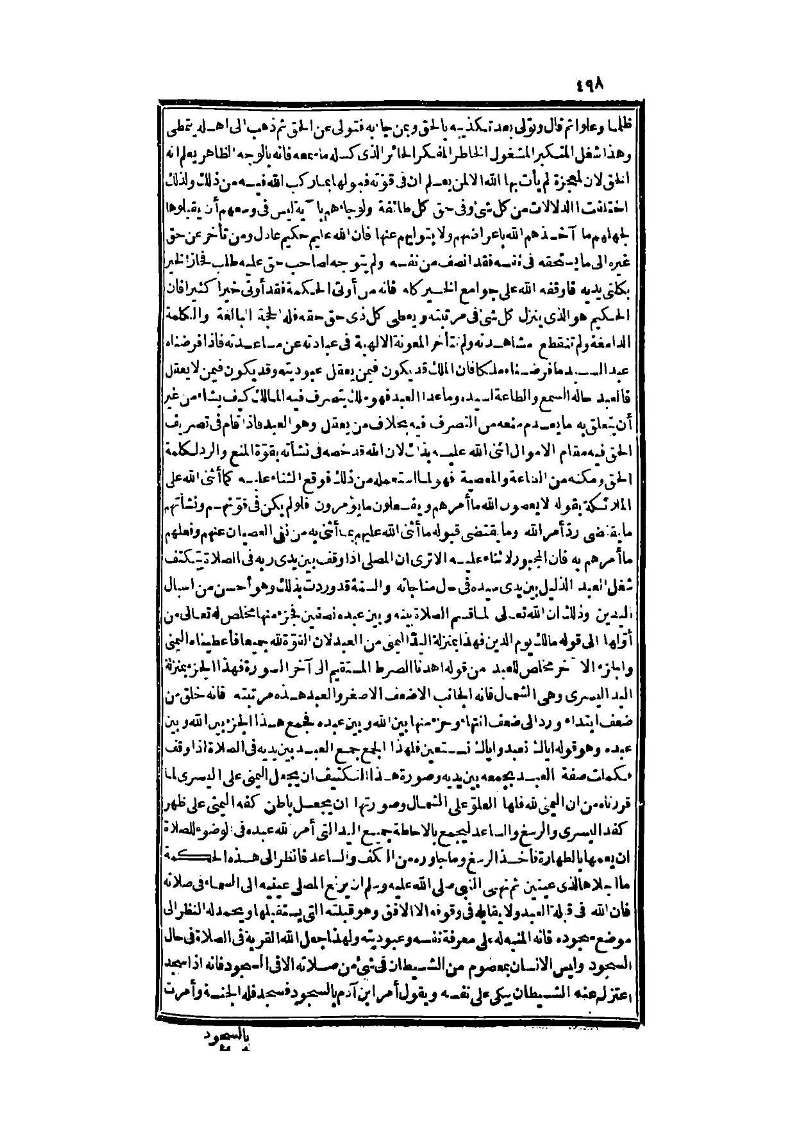 ٤٩٨
ظلما وعلوا ثم قال وتولى بعد تكذيبه بالحق وبمن جاء به فتولى عن الحق ثم ذهب الى اهله يتمطى
وهذا شغل المتكبر المشغول الخاطر المفكر الحائر الذى كسله ما سمعه فانه بالوجه الظاهر يعلم انه
الحق لان المعجزة لم يأت بها الله الا لمن يعلم ان فى قوته قبولها بما ركب الله فيه من ذلك ولذلك
اختلفت الدلالات من كل نبى وفى حق كل طائفة ولو جاءهم بآية ليس فى وسعهم أن يقبلوها
لجهلهم ما آخذهم الله باعراضهم ولا بتوليهم عنها فان الله عليم حكيم عادل ومن تأخر عن حق
غيره الى ما يستحقه فى نفسه فقد انصف من نفسه ولم يتوجه لصاحب حق عليه طلب فحاز الخير
بكلتى يديه فاوقفه الله على جوامع الخير كله فانه من أوتى الحكمة فقد أوتى خيرا كثيرا فان
الحكيم هو الذى ينزل كل شئ فى مرتبته ويعطى كل ذى حق حقه فله الحجة البالغة والكلمة
الدامغة ولم تنقطع مشاهدته ولم تتأخر المعونة الالهية فى عبادته عن مساعدته فاذا فرضناه
عبدا السيد ما فرضناه ملكا فان الملك قد يكون فيمن يعقل عبوديته وقد يكون فيمن لا يعقل
فالعبد حاله السمع والطاعة لسيده وما عدا العبد فهو ملك يتصرف فيه المالك كيف يشاء من غير
أن يتعلق به ما يعدم منعه من التصرف فيه بخلاف من يعقل وهو العبد فاذا قام فى تصريف
الحق فيه مقام الاموال اثنى الله عليه بذلك لان الله قد خصه فى نشأته بقوة المنع والرد لكلمة
الحق ومكنه من الطاعة والمعصية فهو لما استعمله من ذلك فوقع الثناء عليه كما أثنى الله على
الملائكة بقوله لا يعصون الله ما أمرهم ويفعلون ما يؤمرون فلو لم يكن فى قوتهم ونشأتهم
ما يقتضى رد أمر الله وما يقتضى قبوله ما أثنى الله عليهم بما أثنى به من نفى العصيان عنهم وفعلهم
ما أمرهم به فان المجبور لا ثناء عليه الا ترى ان المصلى اذا وقف بين يدى ربه فى الصلاة يتكتف
شغل العبد الذليل بين يدى سيده فى حال مناجاته والسنة قد وردت بذلك وهو أحسن من اسبال
اليدين وذلك ان الله تعالى لما قسم الصلاة بينه وبين عبده نصفين فجزء منها مخلص له تعالى من
أولها الى قوله مالك يوم الدين فهذا بمنزلة اليد اليمنى من العبد لان القوة لله جميعا فأعطيناه اليمنى
والجزء الآخر مخلص للعبد من قوله اهدنا الصراط المستقيم الى آخر السورة فهذا الجزء بمنزلة
اليد اليسرى وهى الشمال فانه الجانب الاضعف الاصغر والعبد هذه مرتبته فانه خلق من
ضعف ابتداء ورد الى ضعف انتهاء وجزء منها بين الله وبين عبده فجمع هذا الجزء بين الله وبين
عبده وهو قوله اياك نعبد واياك نستعين فلهذا الجمع جمع العبد بين يديه فى الصلاة اذا وقف
فكملت صفة العبد بجمعه بين يديه وصورة هذا التكتيف ان يجعل اليمنى على اليسرى لما
قررناه من ان اليمنى لله فلها العلو على الشمال وصورتها ان يجعل باطن كفه اليمنى على ظهر
كفه اليسرى والرسغ والساعد ليجمع بالاحاطة جميع اليد التى أمر الله عبده فى الوضوء للصلاة
ان يعمها بالطهارة فأخذ الرسغ وما جاوره من الكف والساعد فانظر الى هذه الحكمة
ما أجلاها لذى عينين ثم نهى النبى صلى الله عليه وسلم ان يرفع المصلى عينيه الى السماء فى صلاته
فان الله فى قبلة العبد ولا يقابله فى وقوفه الا الافق وهو قبلته التى يستقبلها ويحمد له النظر الى
موضع سجوده فانه المنبه له على معرفة نفسه وعبوديته ولهذا جعل الله القربة فى الصلاة فى حال
السجود وليس الانسان بمعصوم من الشيطان فى شئ من صلاته الا فى السجود فانه اذا سجد
اعتزل عنه الشيطان يبكى على نفسه ويقول أمر ابن آدم بالسجود فسجد فله الجنة وأمرت
بالسجود